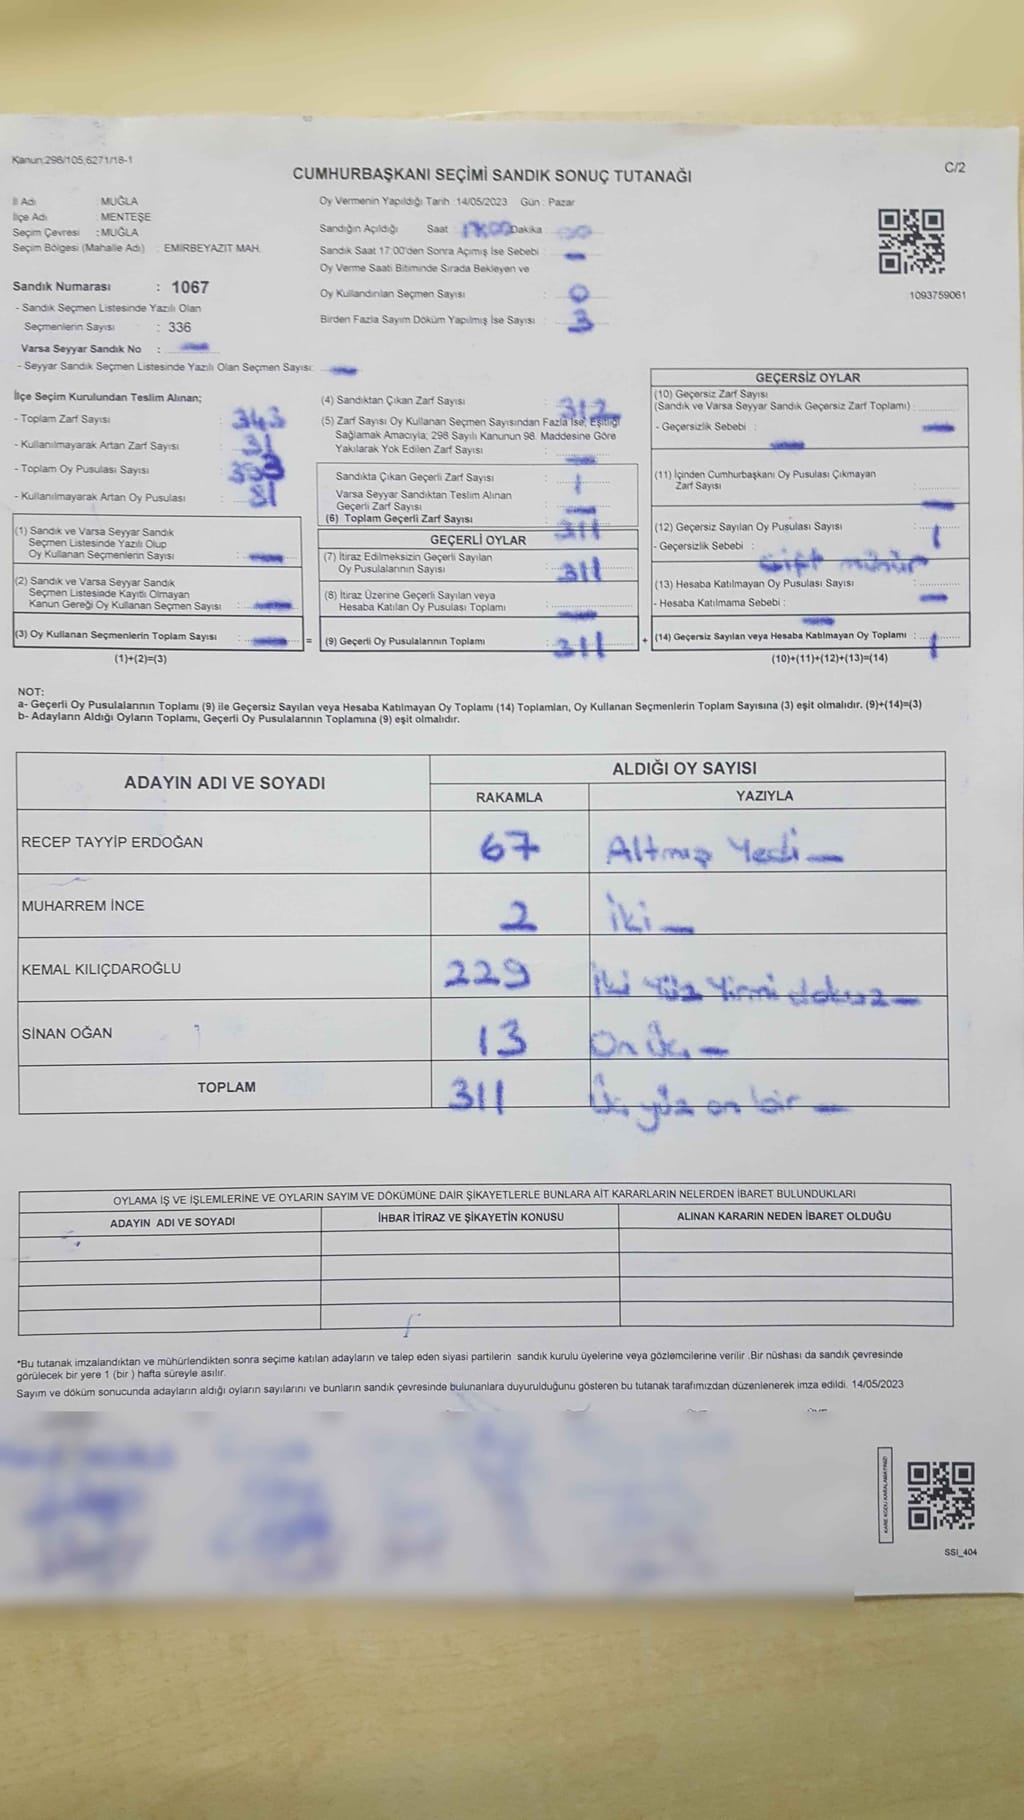 Kanun:298/105,6271/18-1
C/2
CUMHURBAŞKANI SEÇİMİ SANDIK SONUÇ TUTANAĞI
İl Adı : MUĞLA
İlçe Adı : MENTEŞE
Seçim Çevresi : MUĞLA
Seçim Bölgesi (Mahalle Adı) : EMİRBEYAZIT MAH.
Sandık Numarası : 1067
- Sandık Seçmen Listesinde Yazılı Olan
Seçmenlerin Sayısı : 336
Varsa Seyyar Sandık No :
- Seyyar Sandık Seçmen Listesinde Yazılı Olan Seçmen Sayısı:
Oy Vermenin Yapıldığı Tarih :14/05/2023 Gün : Pazar
Sandığın Açıldığı Saat Dakika
Sandık Saat 17:00'den Sonra Açımış İse Sebebi :
Oy Verme Saati Bitiminde Sırada Bekleyen ve
Oy Kullandırılan Seçmen Sayısı : 0
Birden Fazla Sayım Döküm Yapılmış İse Sayısı : 3
1093759061
İlçe Seçim Kurulundan Teslim Alınan;
- Toplam Zarf Sayısı : 343
- Kullanılmayarak Artan Zarf Sayısı : 31
- Toplam Oy Pusulası Sayısı :
- Kullanılmayarak Artan Oy Pusulası : 31
(1) Sandık ve Varsa Seyyar Sandık
Seçmen Listesinde Yazılı Olup
Oy Kullanan Seçmenlerin Sayısı :
(2) Sandık ve Varsa Seyyar Sandık
Seçmen Listesinde Kayıtlı Olmayan
Kanun Gereği Oy Kullanan Seçmen Sayısı :
(3) Oy Kullanan Seçmenlerin Toplam Sayısı : =
(1)+(2)=(3)
(4) Sandıktan Çıkan Zarf Sayısı : 312
(5) Zarf Sayısı Oy Kullanan Seçmen Sayısından Fazla İse, Eşitliği
Sağlamak Amacıyla; 298 Sayılı Kanunun 98. Maddesine Göre
Yakılarak Yok Edilen Zarf Sayısı :
Sandıkta Çıkan Geçerli Zarf Sayısı : 1
Varsa Seyyar Sandıktan Teslim Alınan
Geçerli Zarf Sayısı :
(6) Toplam Geçerli Zarf Sayısı : 311
GEÇERLİ OYLAR
(7) İtiraz Edilmeksizin Geçerli Sayılan
Oy Pusulalarının Sayısı : 311
(8) İtiraz Üzerine Geçerli Sayılan veya
Hesaba Katılan Oy Pusulası Toplamı :
(9) Geçerli Oy Pusulalarının Toplamı : 311 +
GEÇERSİZ OYLAR
(10) Geçersiz Zarf Sayısı
(Sandık ve Varsa Seyyar Sandık Geçersiz Zarf Toplamı) :
- Geçersizlik Sebebi :
(11) İçinden Cumhurbaşkanı Oy Pusulası Çıkmayan
Zarf Sayısı :
(12) Geçersiz Sayılan Oy Pusulası Sayısı : 1
- Geçersizlik Sebebi : Çift mühür
(13) Hesaba Katılmayan Oy Pusulası Sayısı :
- Hesaba Katılmama Sebebi :
(14) Geçersiz Sayılan veya Hesaba Katılmayan Oy Toplamı : 1
(10)+(11)+(12)+(13)=(14)
NOT:
a- Geçerli Oy Pusulalarının Toplamı (9) ile Geçersiz Sayılan veya Hesaba Katılmayan Oy Toplamı (14) Toplamları, Oy Kullanan Seçmenlerin Toplam Sayısına (3) eşit olmalıdır. (9)+(14)=(3)
b- Adayların Aldığı Oyların Toplamı, Geçerli Oy Pusulalarının Toplamına (9) eşit olmalıdır.
ADAYIN ADI VE SOYADI
ALDIĞI OY SAYISI
RAKAMLA YAZIYLA
RECEP TAYYİP ERDOĞAN 67 Altmış Yedi
MUHARREM İNCE 2 İki
KEMAL KILIÇDAROĞLU 229 İki Yüz Yirmi dokuz
SİNAN OĞAN 13 On Üç
TOPLAM 311 Üç yüz on bir
OYLAMA İŞ VE İŞLEMLERİNE VE OYLARIN SAYIM VE DÖKÜMÜNE DAİR ŞİKAYETLERLE BUNLARA AİT KARARLARIN NELERDEN İBARET BULUNDUKLARI
ADAYIN ADI VE SOYADI İHBAR İTİRAZ VE ŞİKAYETİN KONUSU ALINAN KARARIN NEDEN İBARET OLDUĞU
*Bu tutanak imzalandıktan ve mühürlendikten sonra seçime katılan adayların ve talep eden siyasi partilerin sandık kurulu üyelerine veya gözlemcilerine verilir .Bir nüshası da sandık çevresinde
görülecek bir yere 1 (bir ) hafta süreyle asılır.
Sayım ve döküm sonucunda adayların aldığı oyların sayılarını ve bunların sandık çevresinde bulunanlara duyurulduğunu gösteren bu tutanak tarafımızdan düzenlenerek imza edildi. 14/05/2023
KARE KODU KARALAMAYINIZ!
SSI_404